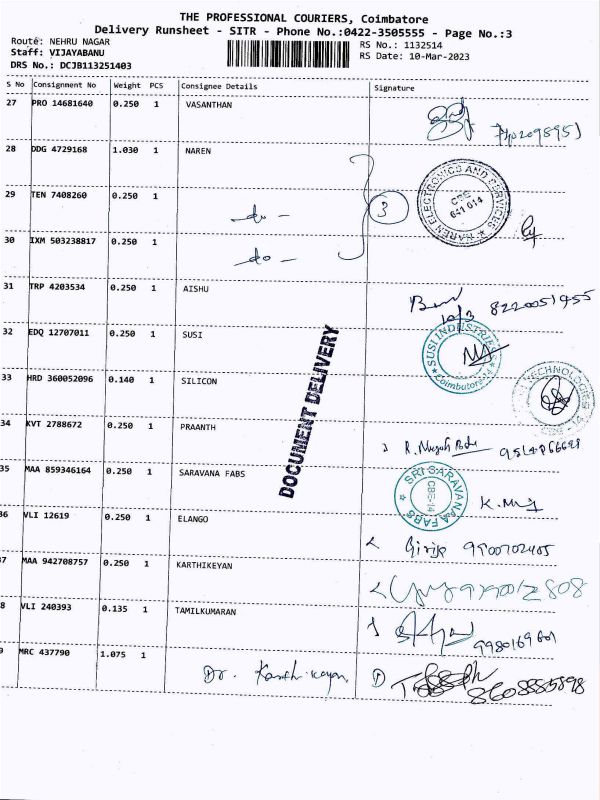 THE PROFESSIONAL COURIERS, Coimbatore
Delivery Runsheet - SITR - Phone No.:0422-3505555 - Page No.:3
Route: NEHRU NAGAR
RS No.: 1132514
Staff: VIJAYABANU
RS Date: 10-Mar-2023
DRS No.: DCJB113251403
S No Consignment No Weight PCS Consignee Details Signature
27 PRO 14681640 0.250 1 VASANTHAN
28 DDG 4729168 1.030 1 NAREN
29 TEN 7408260 0.250 1 do -
3
NAREN ELECTRONICS AND SERVICES CBE 641 014
30 IXM 503238817 0.250 1 do -
31 TRP 4203534 0.250 1 AISHU 8220051455
10/3
32 EDQ 12707011 0.250 1 SUSI
SUSI INDUSTRIES Coimbatore-14
DOCUMENT DELIVERY
33 HRD 360052096 0.140 1 SILICON
TECHNOLOGIES CBE - 14
34 KVT 2788672 0.250 1 PRAANTH
35 MAA 859346164 0.250 1 SARAVANA FABS
SRI SARAVANAA FABS CBE-14
36 VLI 12619 0.250 1 ELANGO
37 MAA 942708757 0.250 1 KARTHIKEYAN
8 VLI 240393 0.135 1 TAMILKUMARAN
9980169601
9 MRC 437790 1.075 1 Dr. Karthikeyan
8608885898